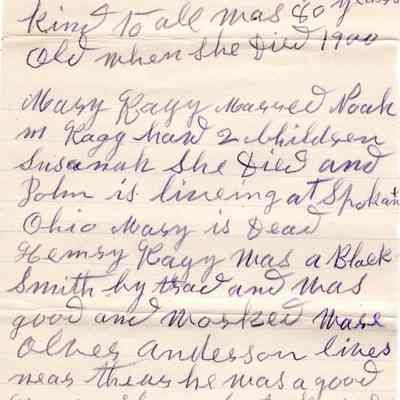 kind to all was 80 years
old when She Died 1900
Mary Kagy Marred Noah
m Kagy had 2 Children
Susanah She Died and
John is liveing at Spokan
Ohio Mary is Dead
Hemry Kagy was a Black
Smith by trad and was
good and worked
Oliver Anderson lives
near he was a good